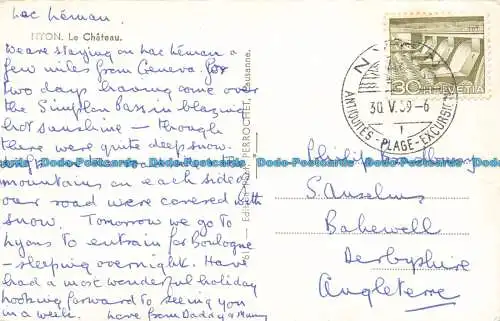 Lac Léman.
NYON. Le Château.
We are staying on Lac Léman a
few miles from Geneva for
two days having come over
the Simplon Pass in blazing
hot sunshine – though
there were quite deep snow-
the
mountains on each side of
our road were covered with
snow. Tomorrow we go to
Lyons to entrain for Boulogne
– sleeping overnight. Have
had a most wonderful holiday
looking forward to seeing you
in a week. Love from Daddy & Mummy
PERROCHET, Lausanne.
30 HELVETIA
NYON
30.V.59-6
ANTIQUITÉS - PLAGE - EXCURSIONS
Philip
S. Anselms
Bakewell
Derbyshire
Angleterre
Dodo-Postcards Dodo-Postcards Dodo-Postcards Dodo-Postcards Dodo-Postcards